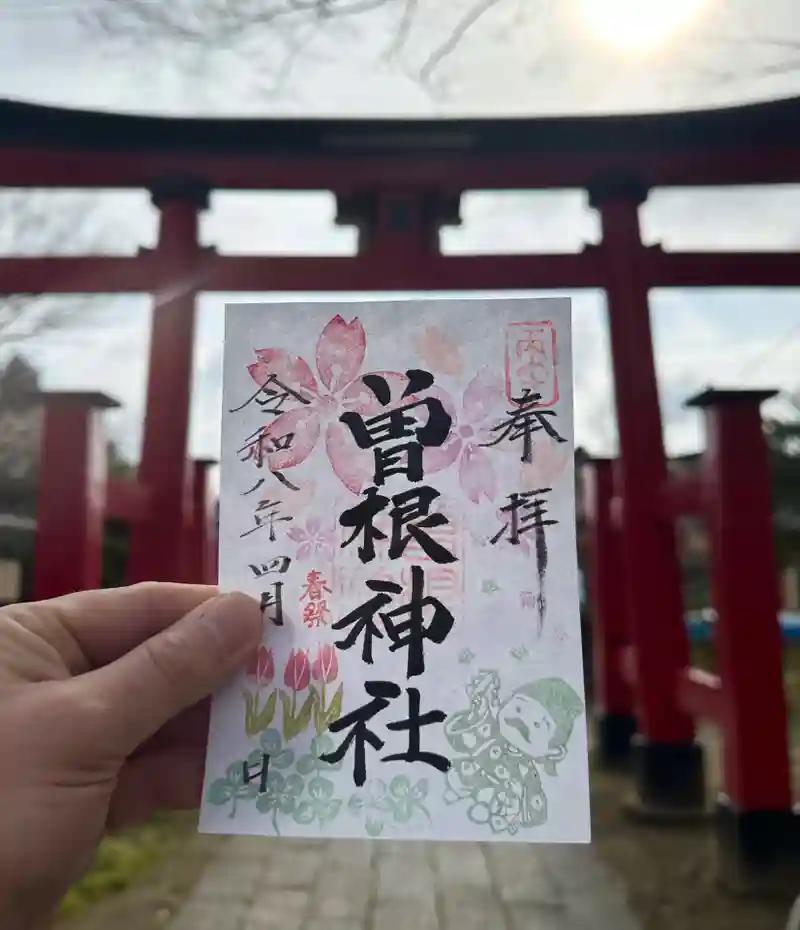 丙午
奉拝
曽根神社
令和八年四月
日
春祭